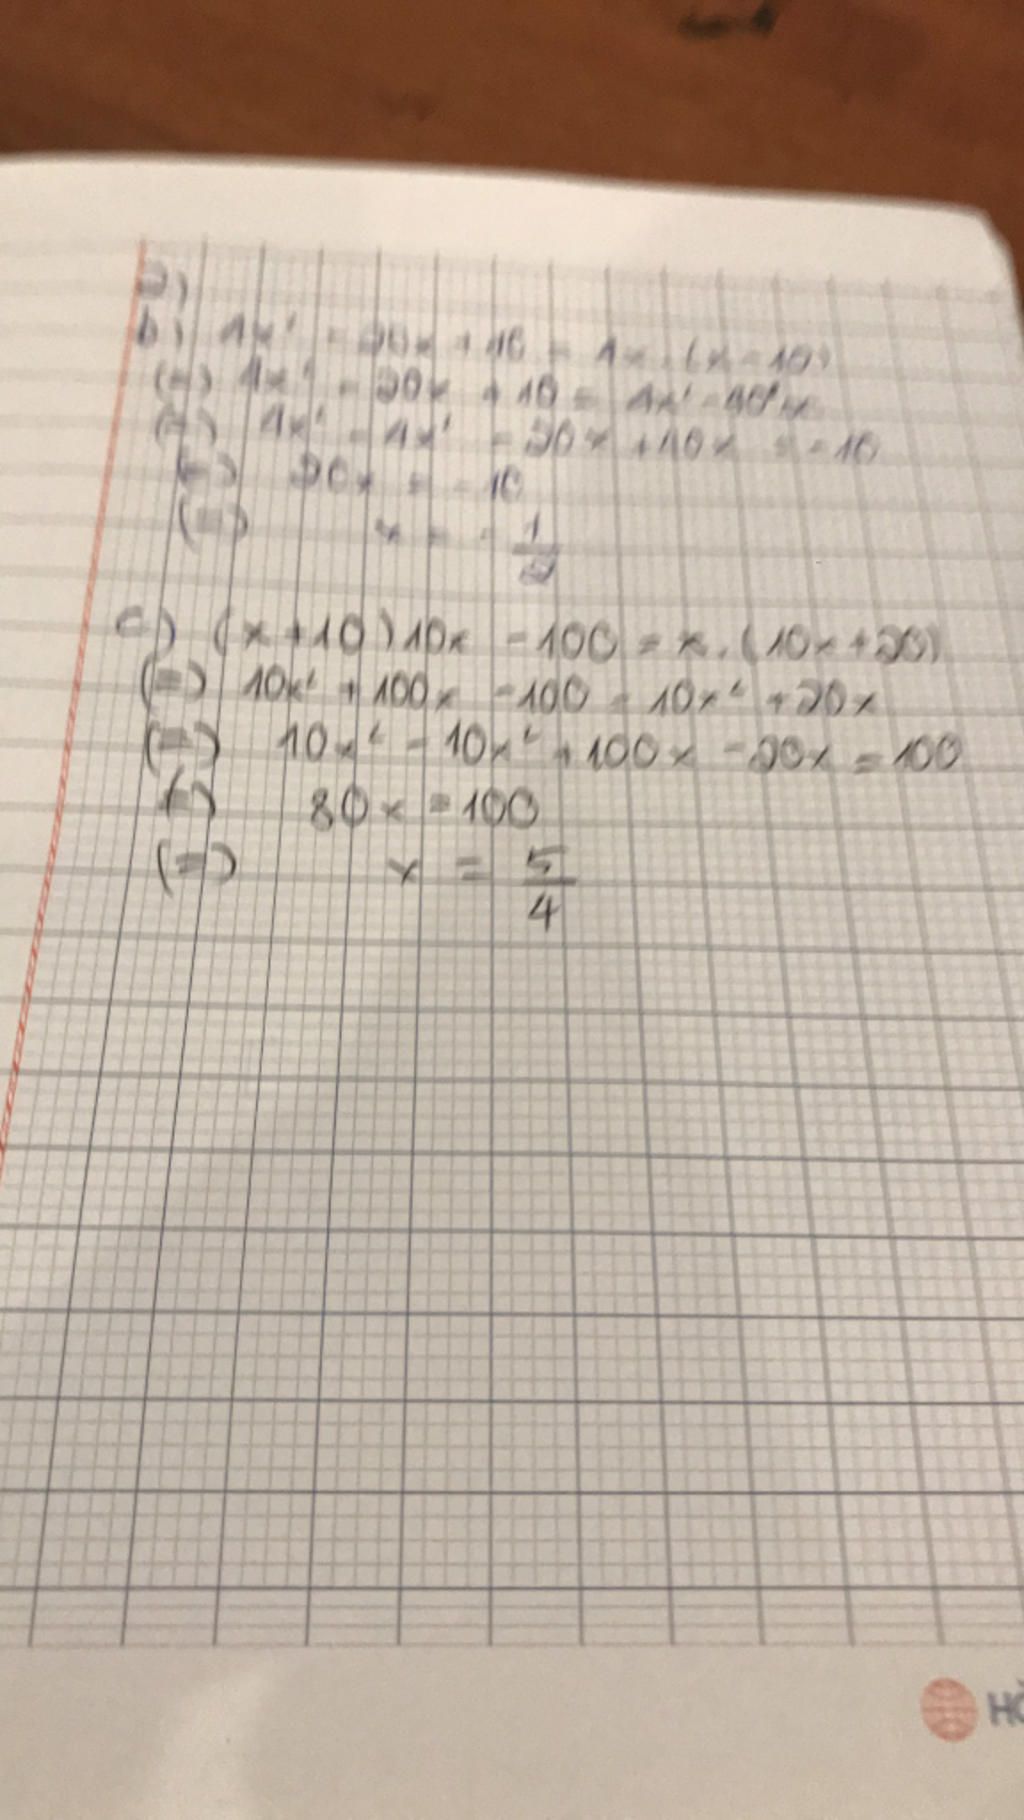 a)
b) 4x² - 20x + 10 = 4x.(x - 10)
(=) 4x² - 20x + 10 = 4x² - 40x
(=) 4x² - 4x² - 20x + 40x = -10
(=) 20x = -10
(=) x = - 1/2
c) (x+10)10x - 100 = x.(10x+20)
(=) 10x² + 100x - 100 = 10x² + 20x
(=) 10x² - 10x² + 100x - 20x = 100
(=) 80x = 100
(=) x = 5/4